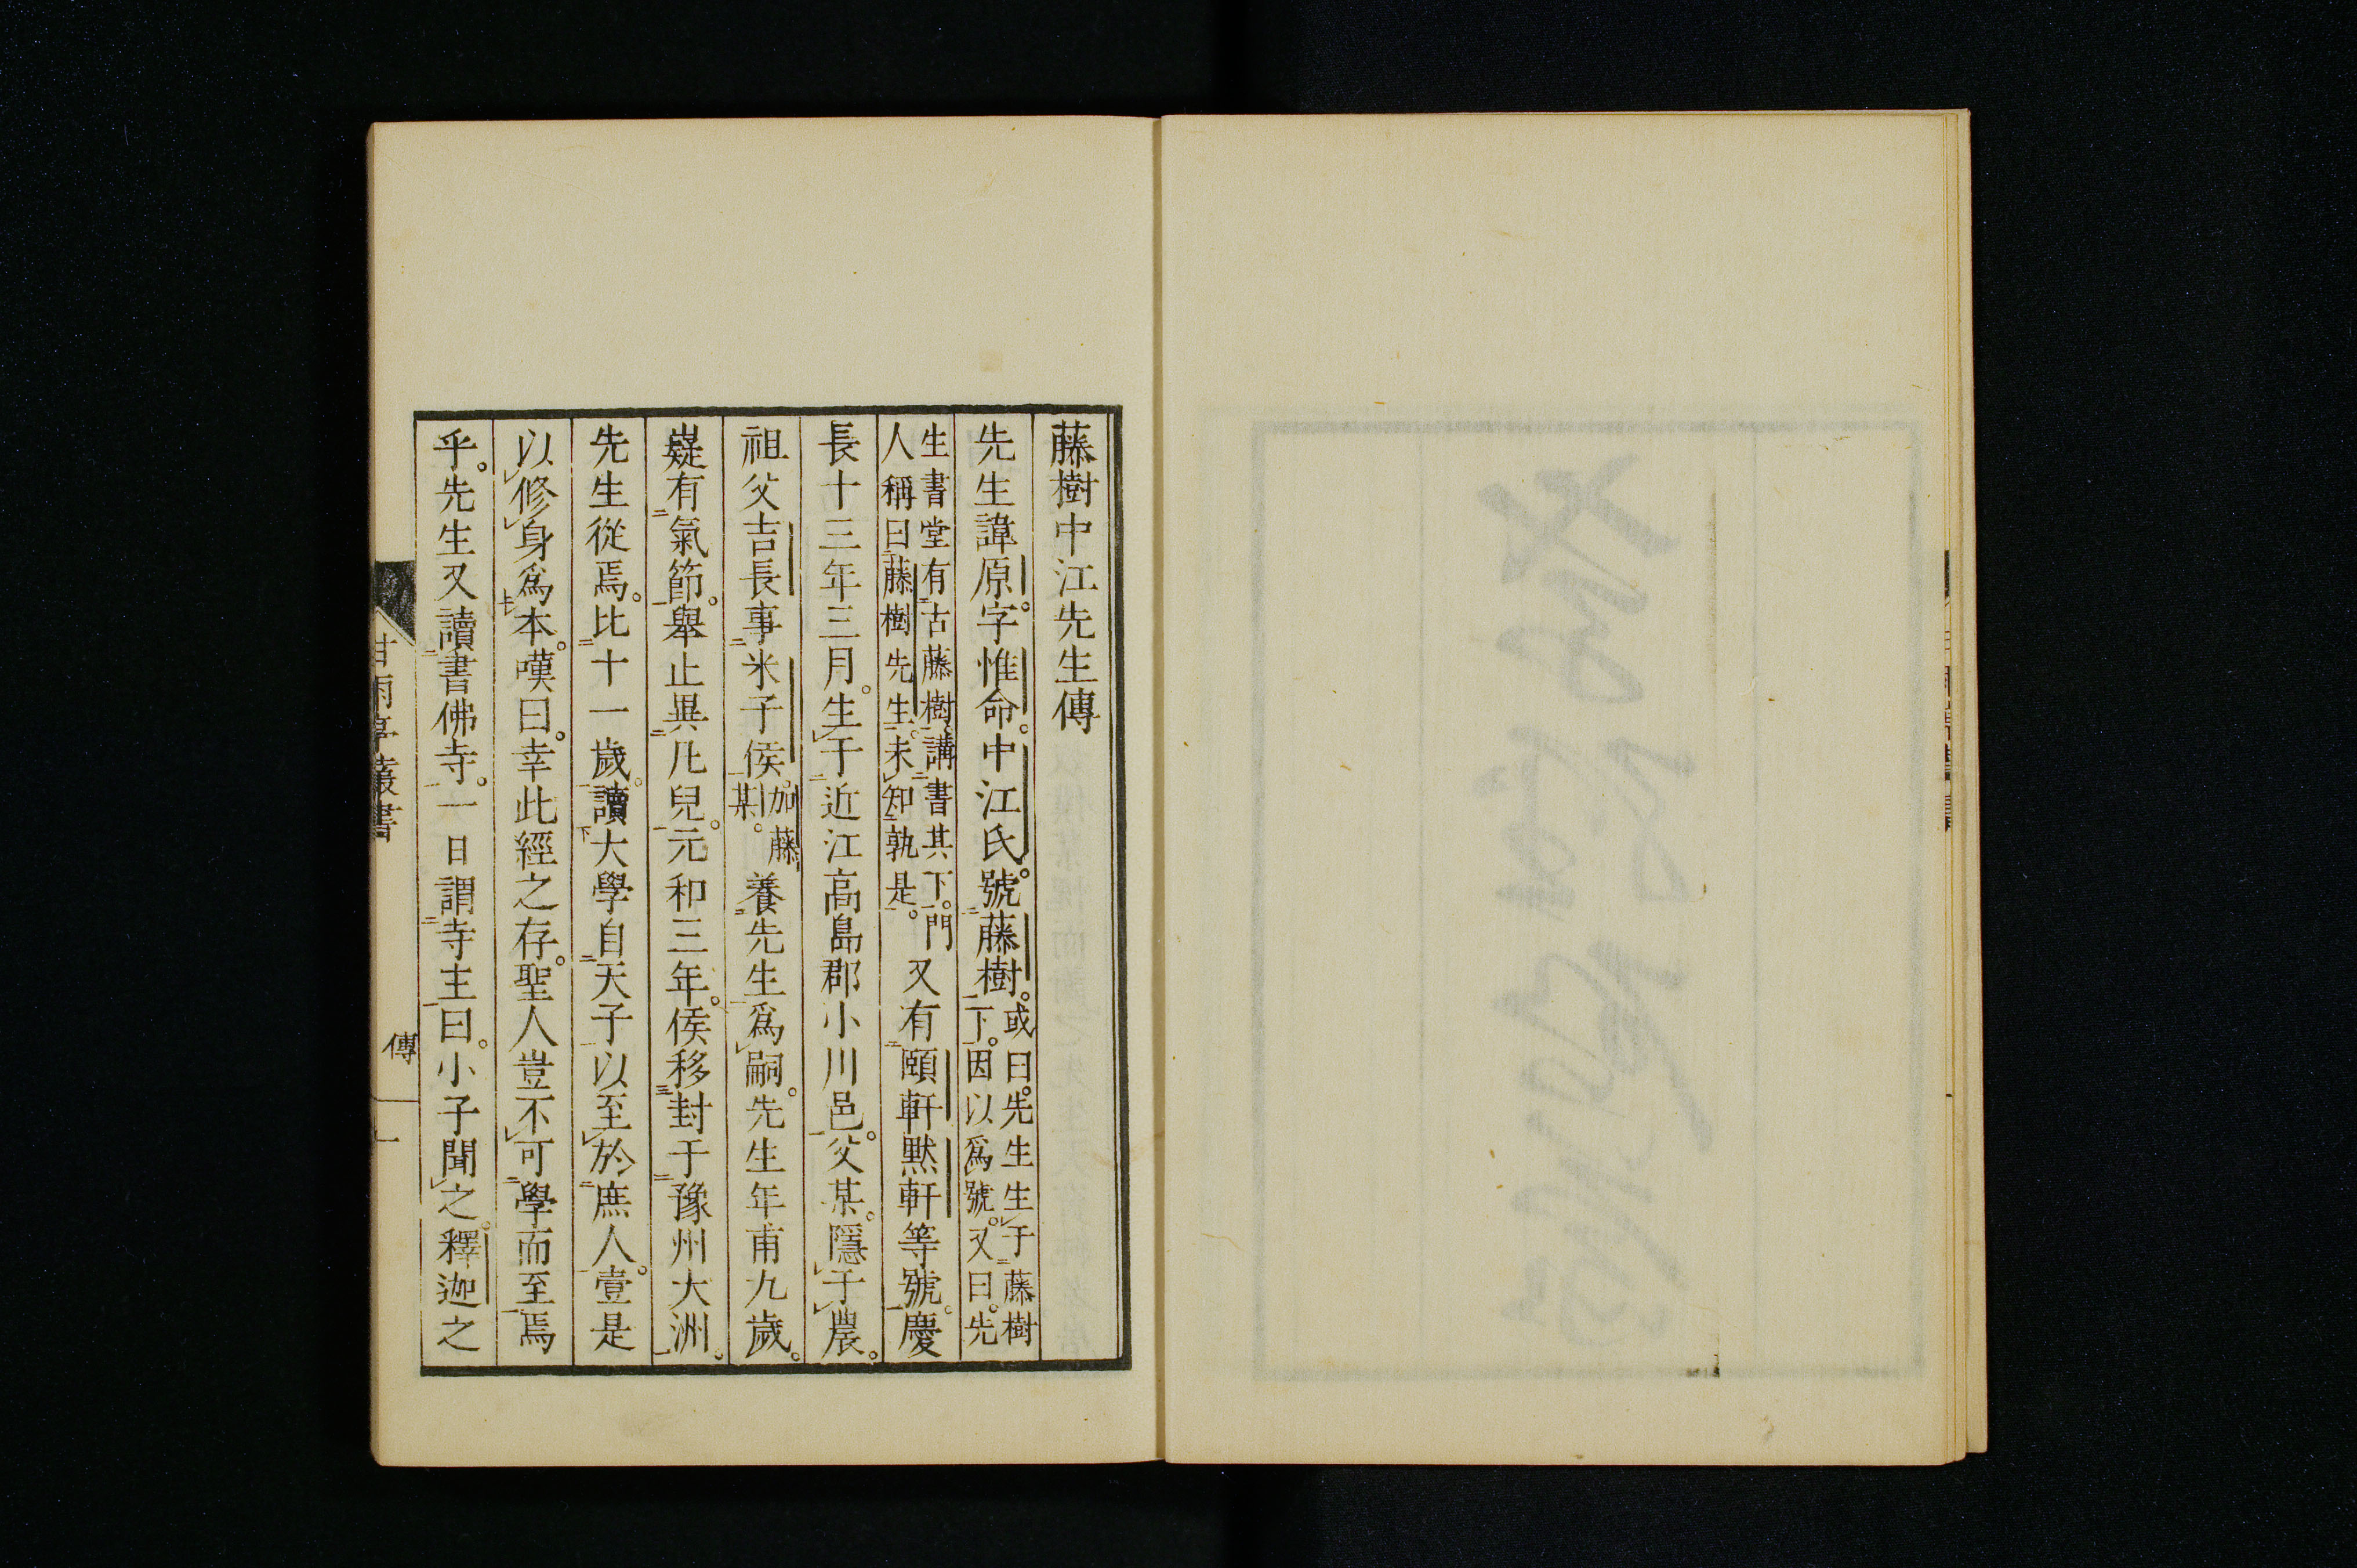 藤樹中江先生傳
先生諱原。字惟命。中江氏。號藤樹。或曰。先生生于藤樹下。因以爲號。又曰。先
生書堂有古藤樹、講書其下。門人稱曰藤樹先生。未知孰是。又有頤軒默軒等號。慶
長十三年三月。生于近江高島郡小川邑。父某。隱于農。
祖父吉長事米子侯。加藤某。養先生爲嗣。先生年甫九歲。
嶷有氣節。舉止異凡兒。元和三年。侯移封于豫州大洲。
先生從焉。比十一歲。讀大學自天子以至於庶人。壹是
以修身爲本。嘆曰。幸此經之存。聖人豈不可學而至焉
乎。先生又讀書佛寺。一日謂寺主曰。小子聞之。釋迦之
甘雨亭叢書
傳
一